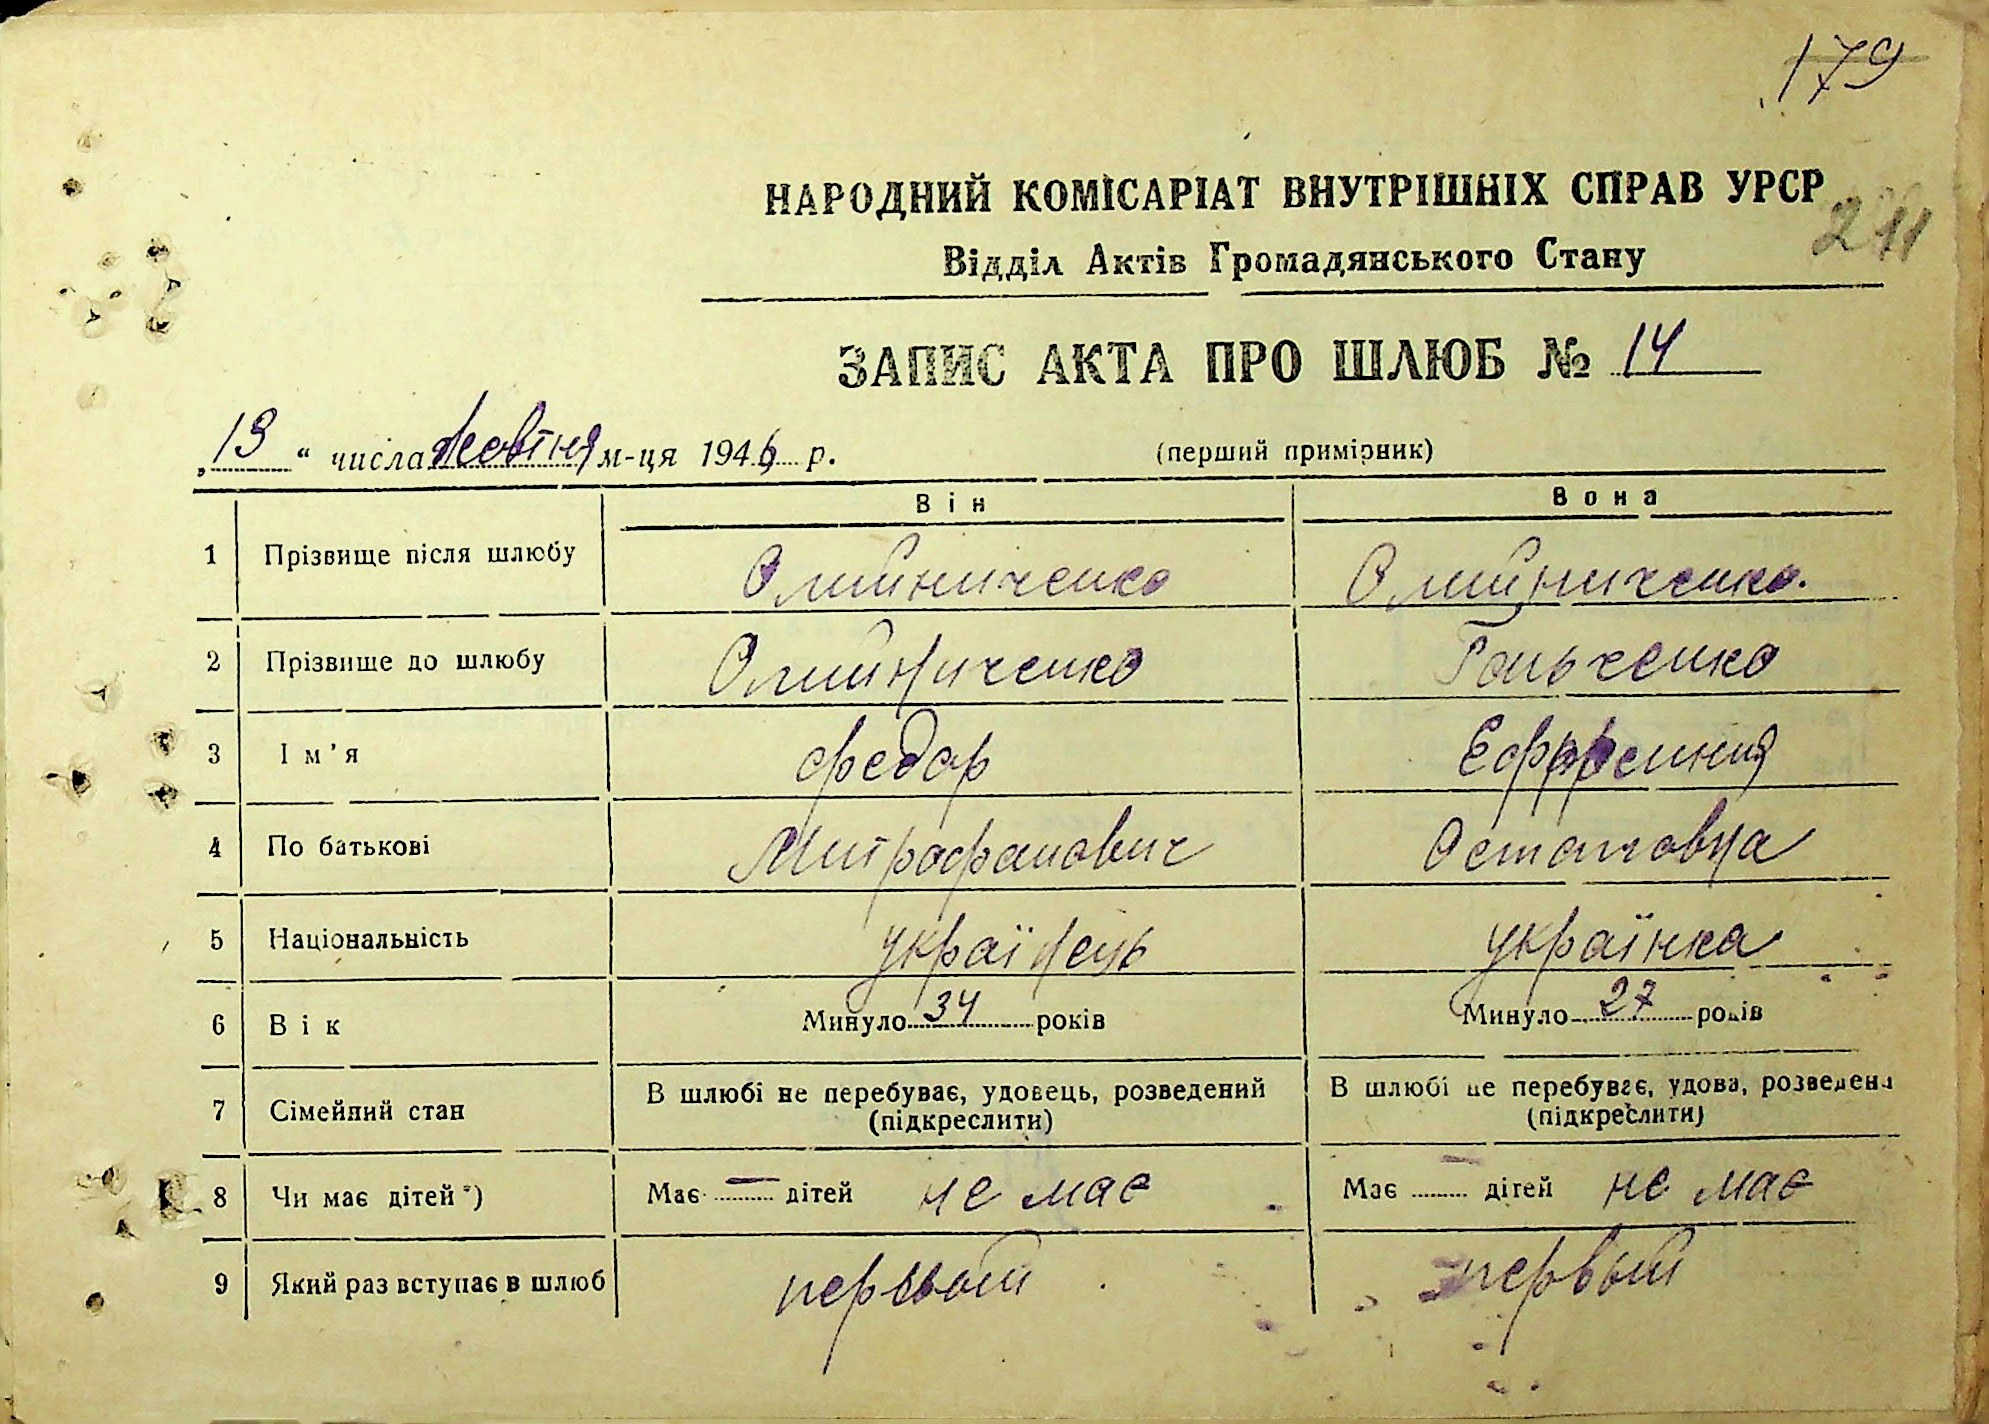 179
НАРОДНИЙ КОМІСАРІАТ ВНУТРІШНІХ СПРАВ УРСР
211
Відділ Актів Громадянського Стану
ЗАПИС АКТА ПРО ШЛЮБ № 14
„19“ числа жовтня м-ця 1946 р. (перший примірник)
Він Вона
1 Прізвище після шлюбу Олийниченко Олийниченко.
2 Прізвище до шлюбу Олийниченко Ганьченко
3 Ім'я Федор
4 По батькові Митрофанович Остаповна
5 Національність українець українка
6 Вік Минуло 34 років Минуло 27 років
7 Сімейний стан В шлюбі не перебуває, удовець, розведений В шлюбі не перебуває, удова, розведена
(підкреслити) (підкреслити)
8 Чи має дітей*) Має — дітей не має Має — дітей не має
9 Який раз вступає в шлюб первый первый